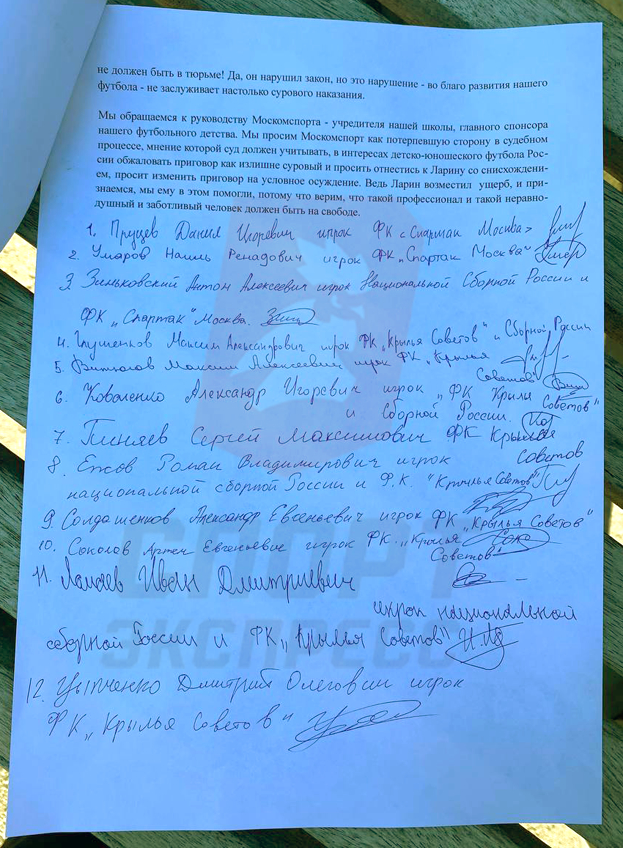 не должен быть в тюрьме! Да, он нарушил закон, но это нарушение - во благо развития нашего
футбола - не заслуживает настолько сурового наказания.
Мы обращаемся к руководству Москомспорта - учредителя нашей школы, главного спонсора
нашего футбольного детства. Мы просим Москомспорт как потерпевшую сторону в судебном
процессе, мнение которой суд должен учитывать, в интересах детско-юношеского футбола Рос-
сии обжаловать приговор как излишне суровый и просить отнестись к Ларину со снисхождени-
ем, просит изменить приговор на условное осуждение. Ведь Ларин возместил ущерб, и при-
знаемся, мы ему в этом помогли, потому что верим, что такой профессионал и такой неравно-
душный и заботливый человек должен быть на свободе.
1. Пруцев Данил Игоревич игрок ФК «Спартак Москва»
2. Умяров Наиль Ренадович игрок ФК „Спартак Москва"
3. Зиньковский Антон Алексеевич игрок Национальной Сборной России и
ФК „Спартак" Москва.
4. Глушенков Максим Александрович игрок ФК „Крылья Советов" и Сборной России
5. Максим Алексеевич игрок ФК „Крылья
Советов"
6. Коваленко Александр Игоревич игрок „ФК Крылья Советов"
и сборной России.
7. Пиняев Сергей Максимович ФК Крылья
Советов
8. Ежов Роман Владимирович игрок
национальной сборной России и Ф.К. "Крылья Советов"
9. Солдатенков Александр Евгеньевич игрок ФК „Крылья Советов"
10. Соколов Артем Евгеньевич игрок ФК „Крылья
Советов"
11. Иван Дмитриевич
игрок национальной
сборной России и ФК „Крылья Советов"
12. Цыпченко Дмитрий Олегович игрок
ФК „Крылья Советов"
СПОРТ
ЭКСПРЕСС